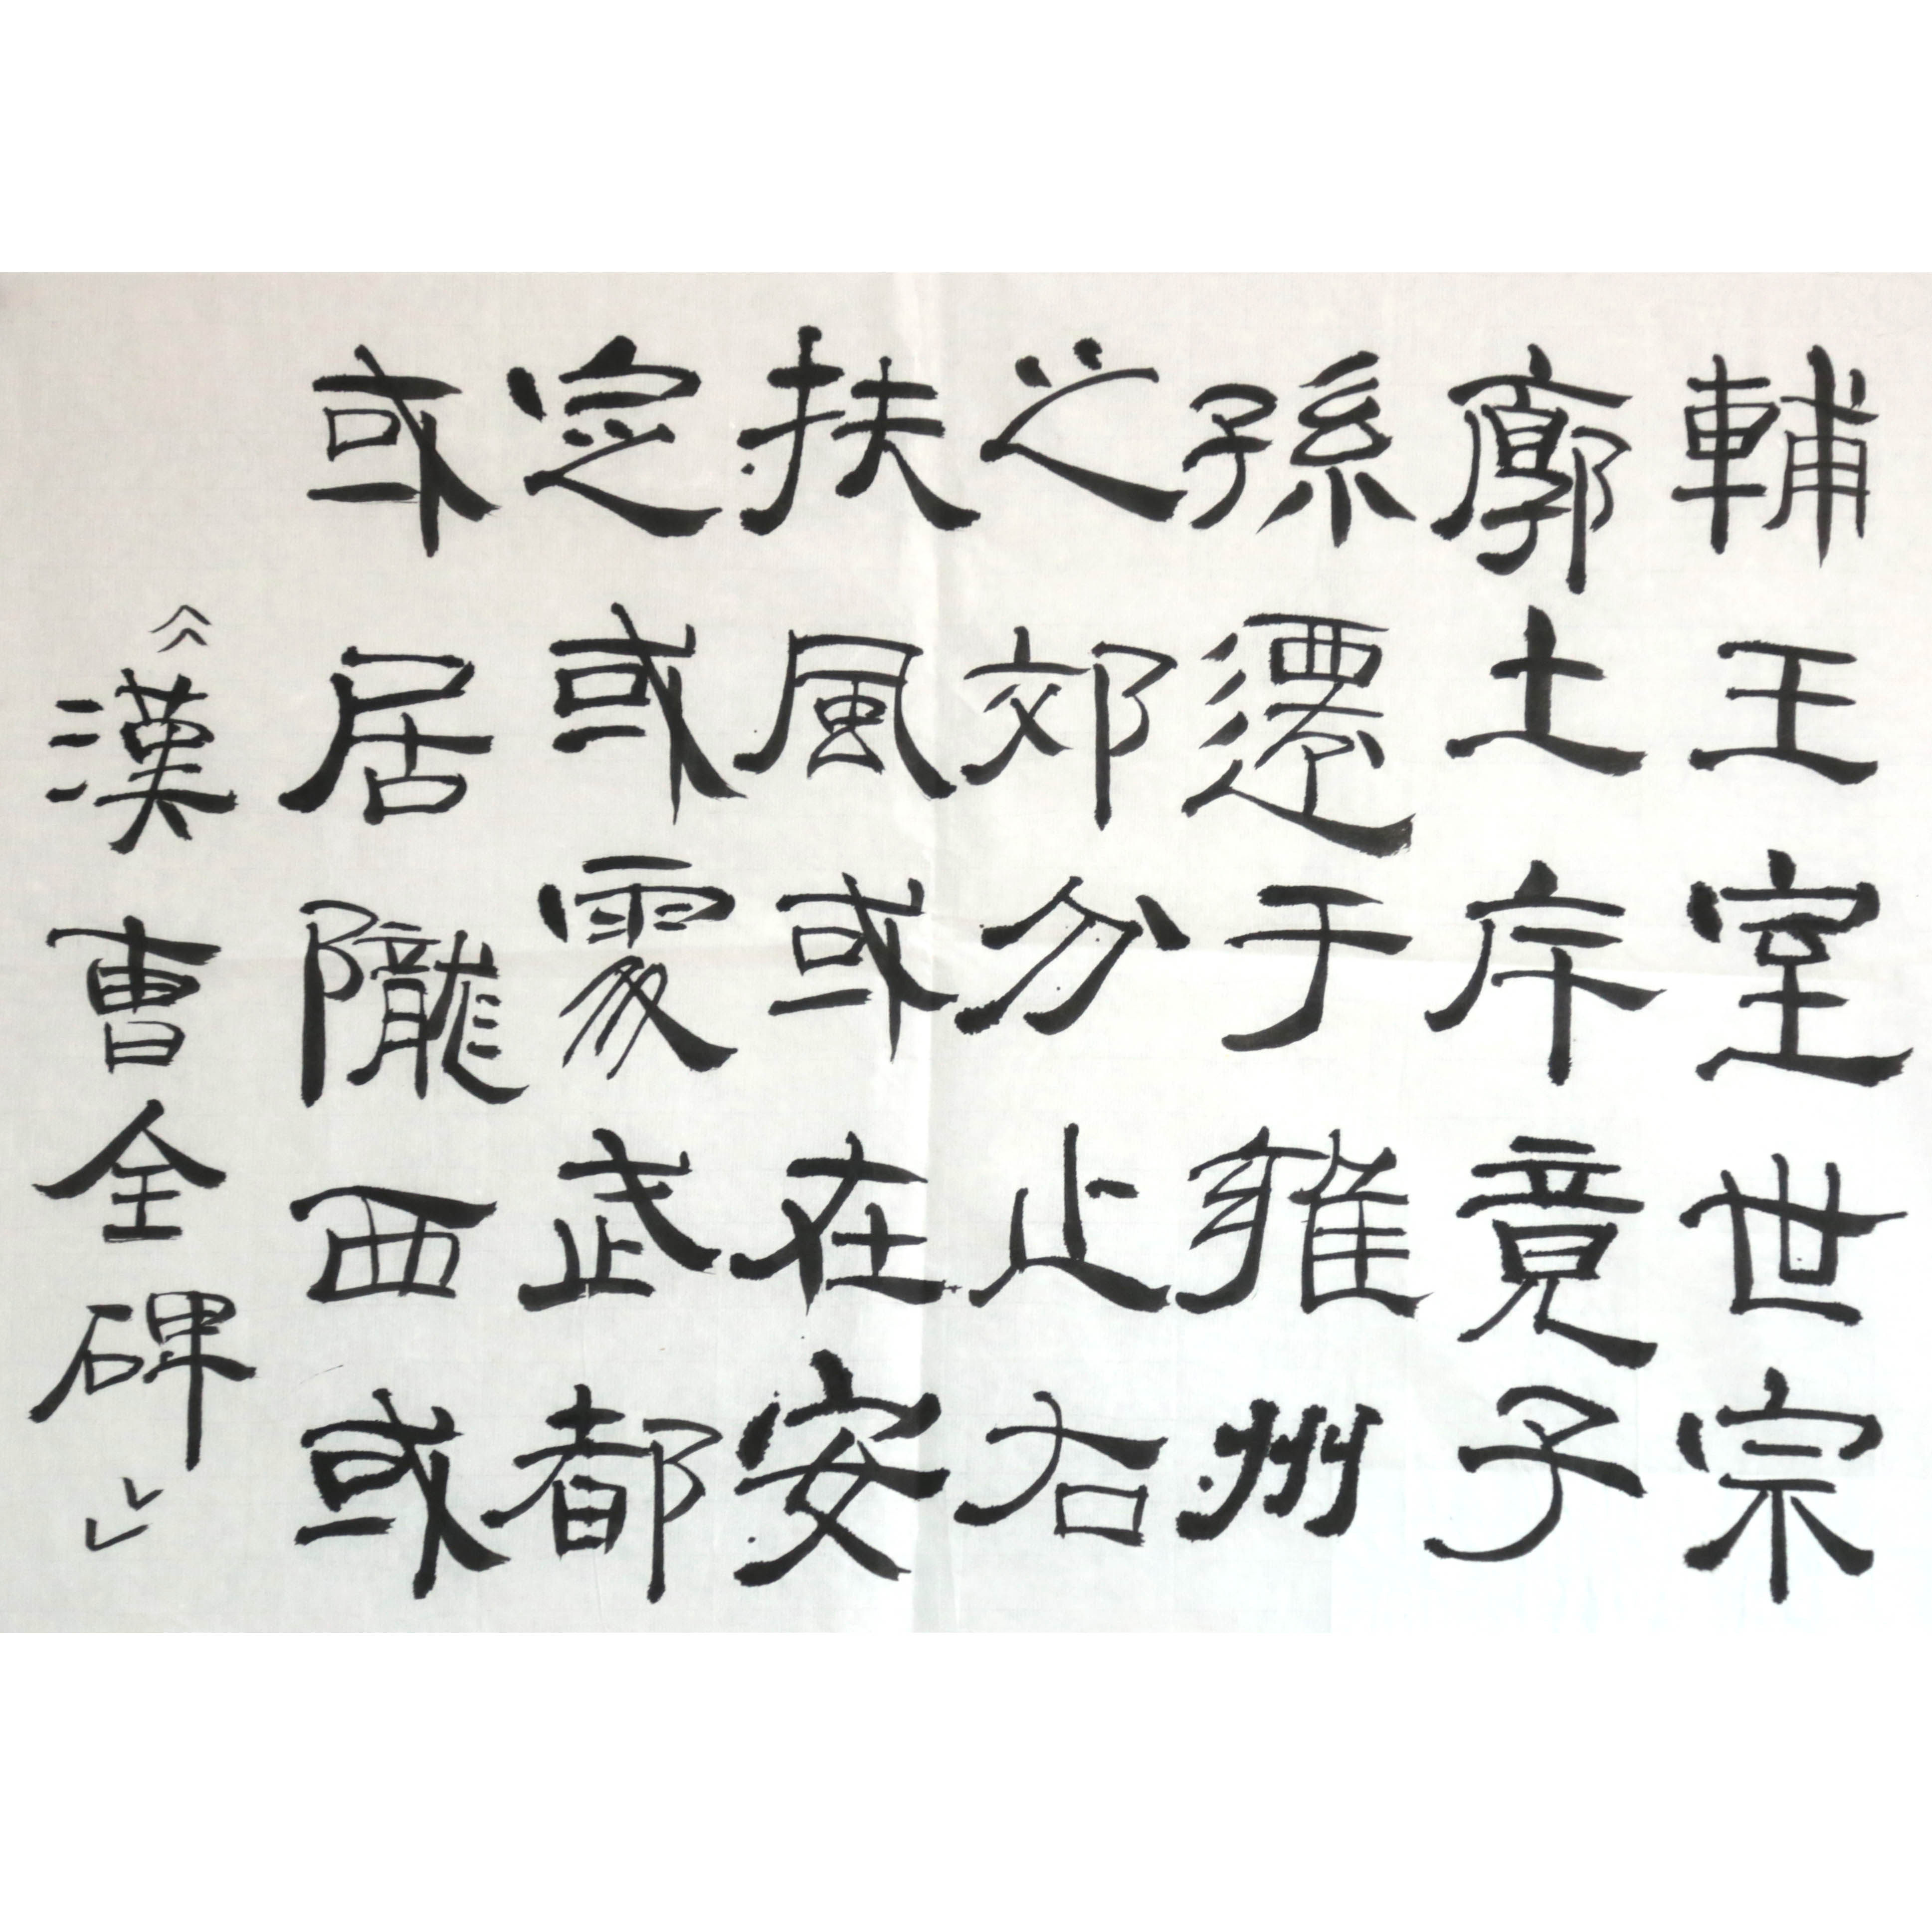 輔王室世宗
廓土斥竟子
孫遷于雍州
之郊分止右
扶風或在安
定或處武都
或居隴西或
《漢曹全碑》